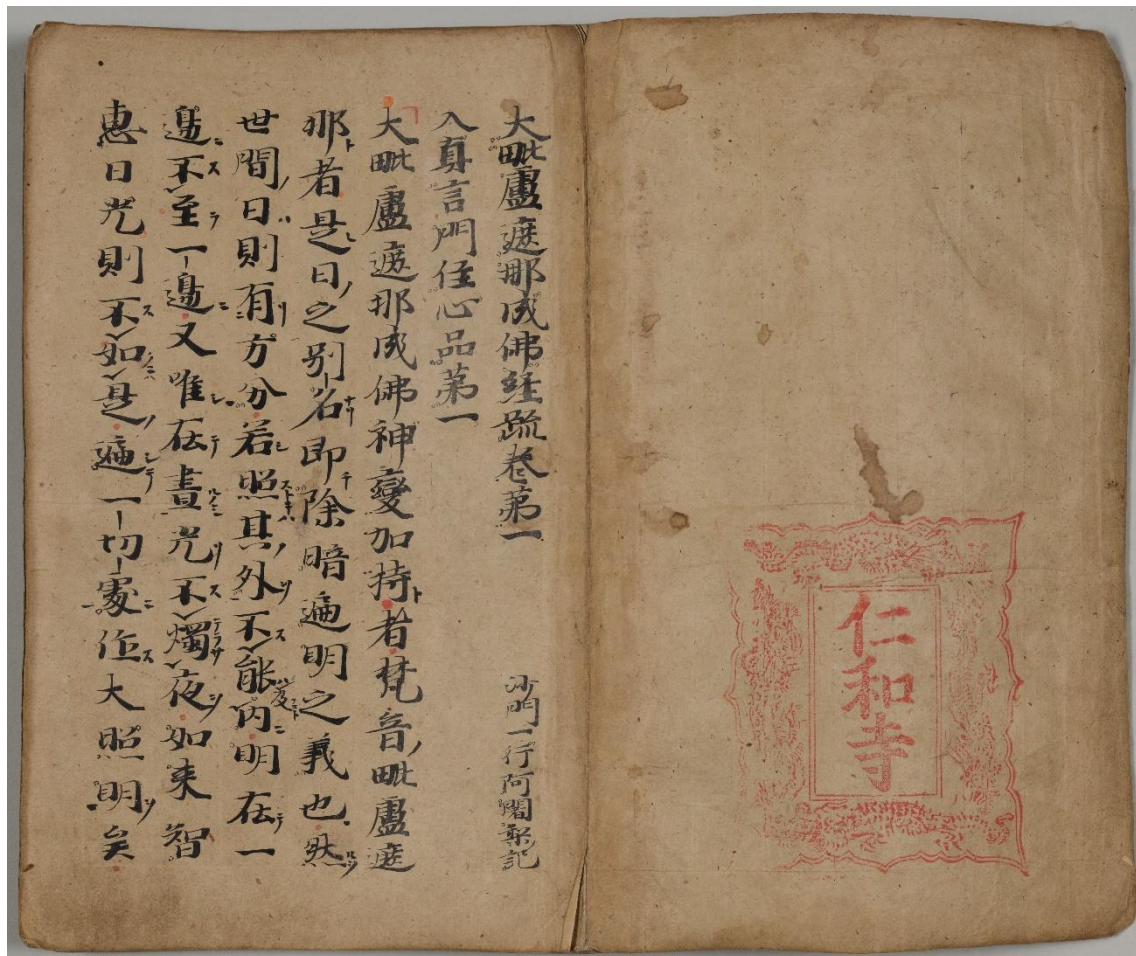 仁和寺
大毗盧遮那成佛経疏卷第一
沙門一行阿闍梨記
入真言門住心品第一
大毗盧遮那成佛神變加持者梵音毗盧遮
那者是日之別名即除暗遍明之義也然
世間日則有方分若照其外不能內明在一
邊不至一邊又唯在晝光不燭夜如来智
惠日光則不如是遍一切處作大照明矣